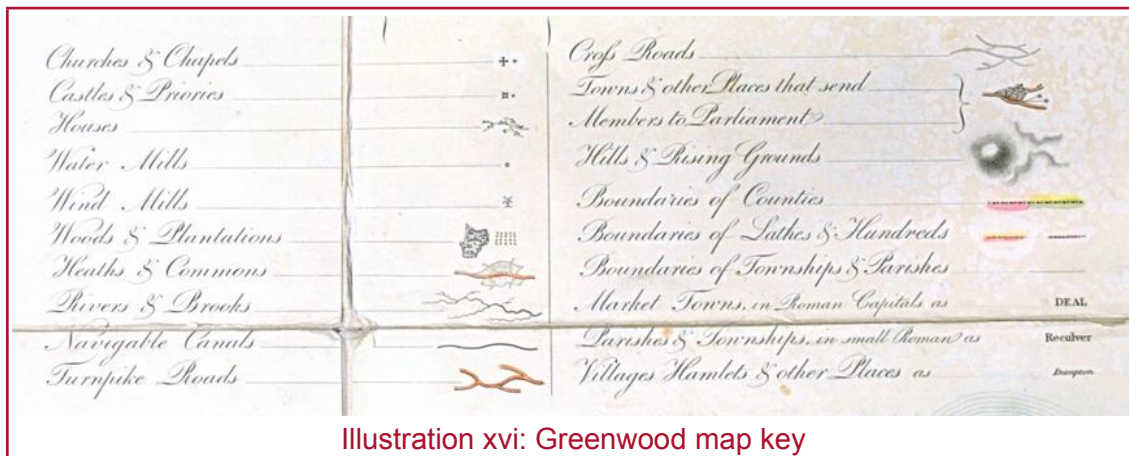 Churches & Chapels
Castles & Priories
Houses
Water Mills
Wind Mills
Woods & Plantations
Heaths & Commons
Rivers & Brooks
Navigable Canals
Turnpike Roads
Croſs Roads
Towns & other Places that send
Members to Parliament
Hills & Rising Grounds
Boundaries of Counties
Boundaries of Lathes & Hundreds
Boundaries of Townships & Parishes
Market Towns, in Roman Capitals as DEAL
Parishes & Townships, in small Roman as Reculver
Villages Hamlets & other Places as
Illustration xvi: Greenwood map key